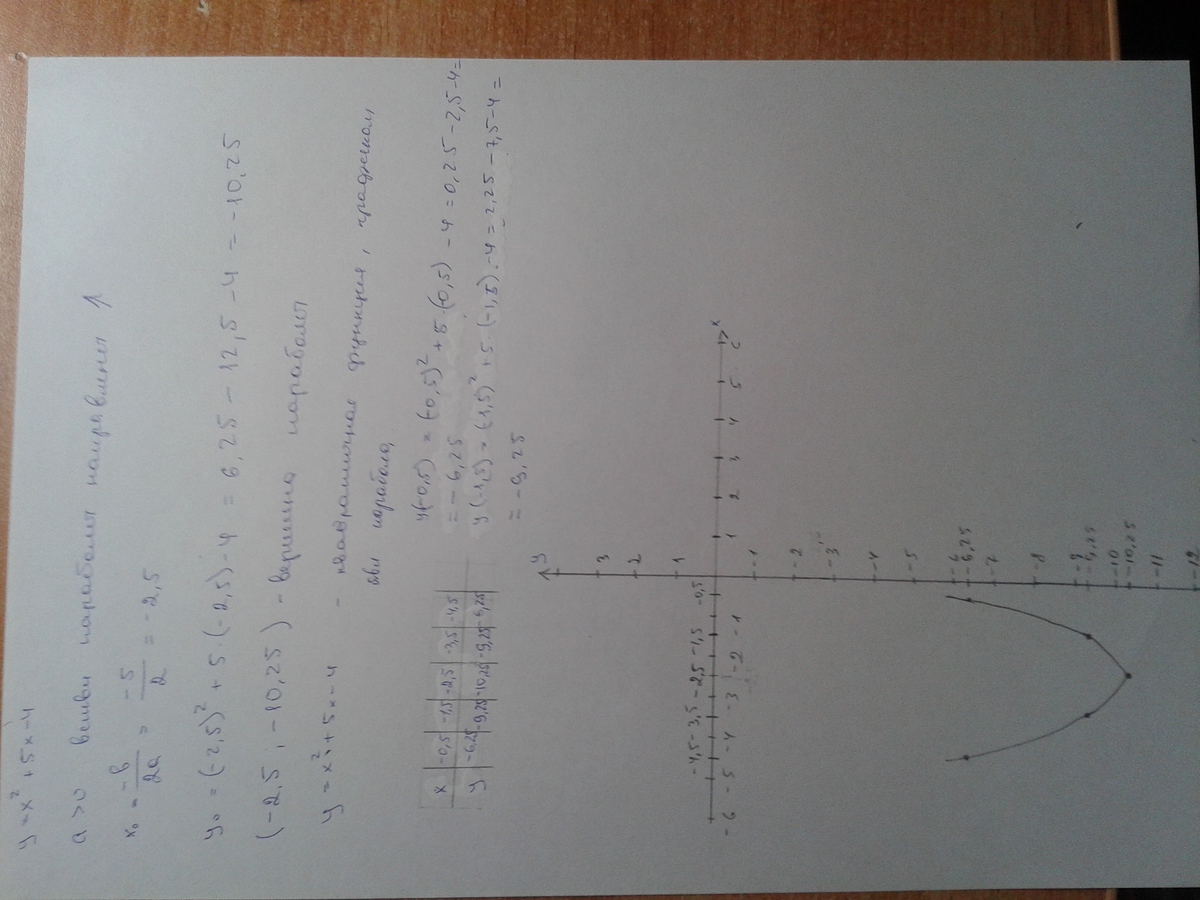 y = x² + 5x - 4
a > 0 ветви параболы направлены ↑
x₀ = -b/2a = -5/2 = -2,5
y₀ = (-2,5)² + 5·(-2,5) - 4 = 6,25 - 12,5 - 4 = -10,25
(-2,5; -10,25) - вершина параболы
y = x² + 5x - 4 - квадратичная функция, графиком
явл парабола
x -0,5 -1,5 -2,5 -3,5 -4,5
y -6,25 -9,25 -10,25 -9,25 -6,25
y(-0,5) = (-0,5)² + 5·(-0,5) - 4 = 0,25 - 2,5 - 4 =
= -6,25
y(-1,5) = (-1,5)² + 5·(-1,5) - 4 = 2,25 - 7,5 - 4 =
= -9,25
y
3
2
1
-4,5 -3,5 -2,5 -1,5 -0,5
x
-6 -5 -4 -3 -2 -1 1 2 3 4 5
-1
-2
-3
-4
-5
-6
-6,25
-7
-8
-9
-9,25
-10
-10,25
-11
-12